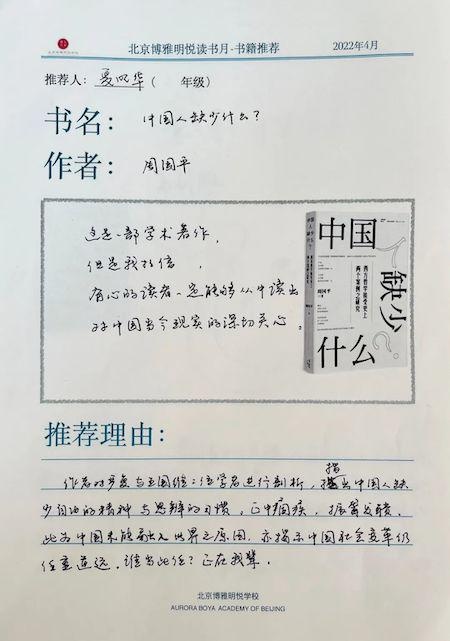 北京博雅明悦读书月-书籍推荐 2022年4月
推荐人：夏明华（ 年级）
书名： 中国人缺少什么？
作者： 周国平
这是一部学术著作，
但是我相信，
有心的读者一定能够从中读出
对中国当今现实的深切关心。
中国人缺少什么？
西方哲学接受史上
两个案例之研究
周国平
推荐理由：
作者对严复与王国维二位学者进行剖析，指出中国人缺
少自由的精神与思辨的习惯，正中痼疾，振聋发聩。
此为中国未能融入世界之原因，亦揭示中国社会变革仍
任重道远。谁当此任？正在我辈。
北京博雅明悦学校
AURORA BOYA ACADEMY OF BEIJING